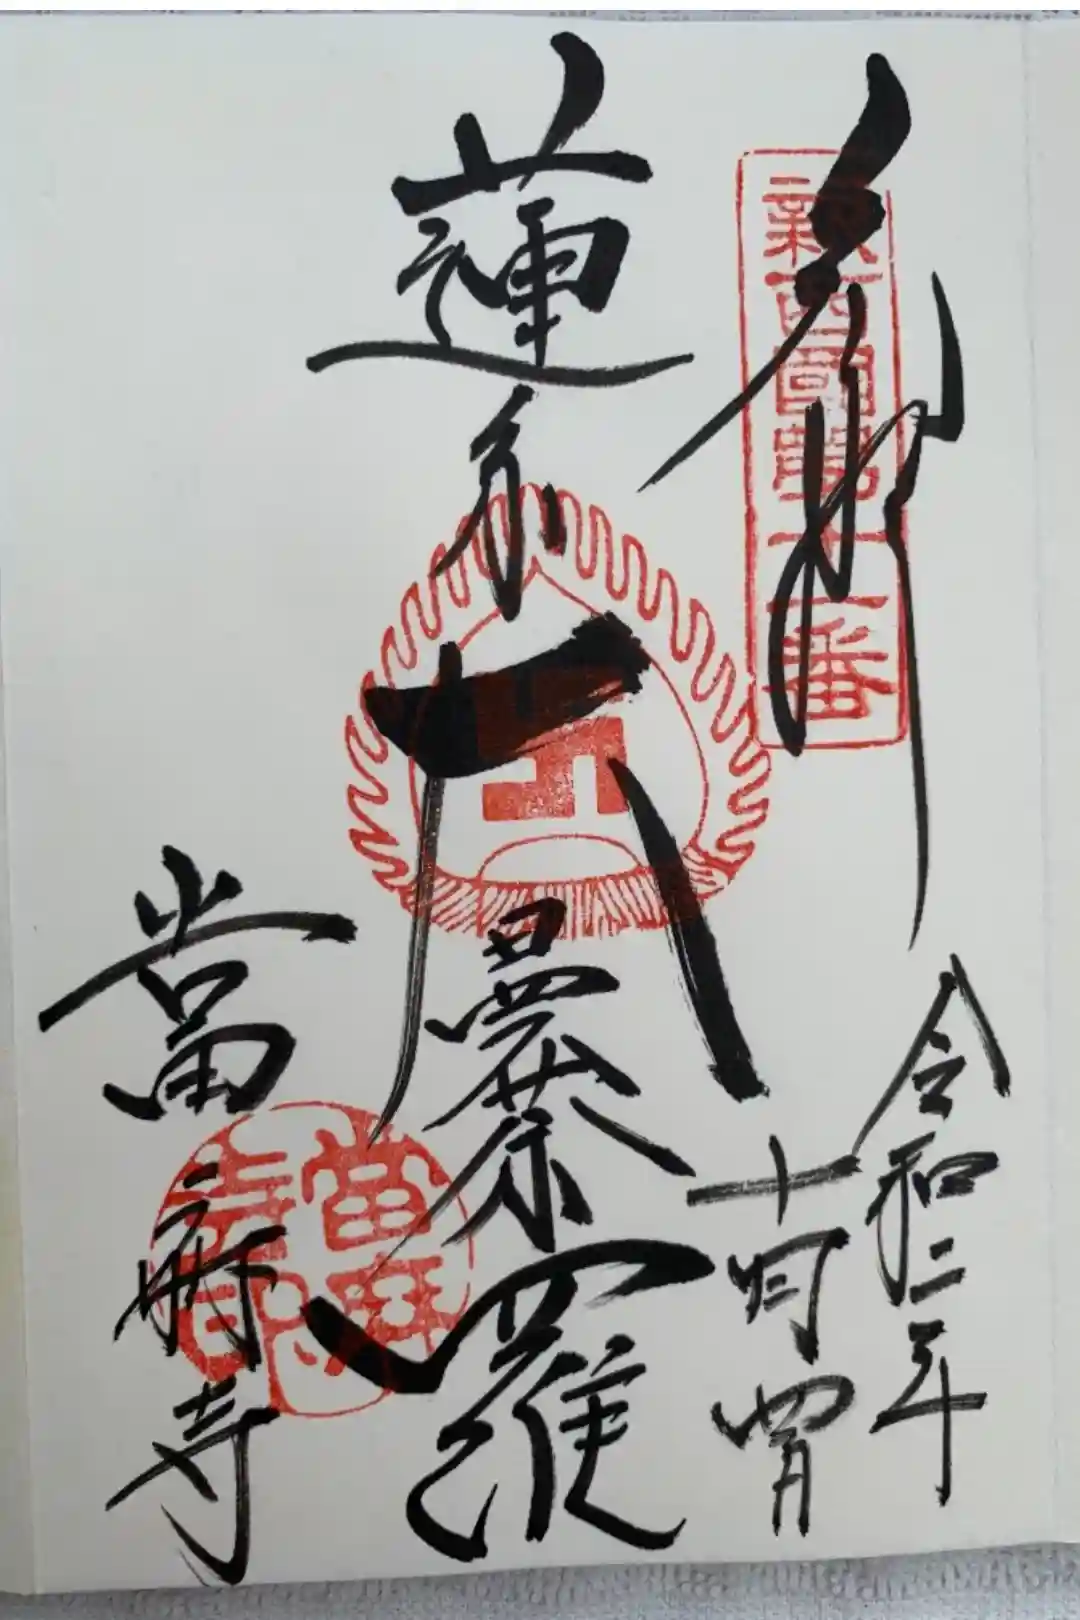 奉拝
新西國第十一番
蓮糸大曼荼羅
令和二年
十月四日
當麻寺